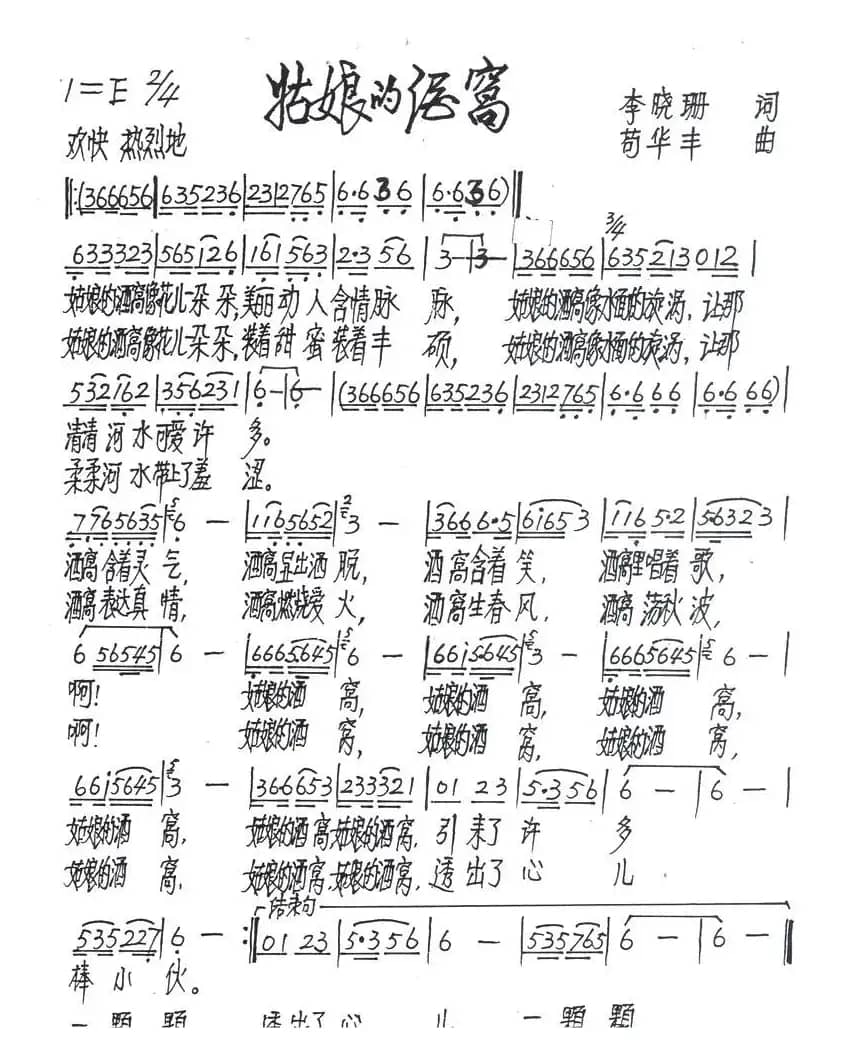 1=E 2/4
姑娘的酒窝
李晓珊 词
欢快 热烈地
苟华丰 曲
‖:(366656|635236|2312765|6·636|6·636)‖
3/4
633323|565i26|i6i563|2·356|3-|3-|366656|635213012|
姑娘的酒窝像花儿朵朵,美丽动人含情脉脉,姑娘的酒窝像水面的旋涡,让那
姑娘的酒窝像花儿朵朵,装着甜蜜装着丰硕,姑娘的酒窝像水面的旋涡,让那
532162|356231|6-|6-|(366656|635236|2312765|6·666|6·666)|
清清河水可爱许多。
柔柔河水带上了羞涩。
7765635|6-|1165652|3-|3666·5|6i653|1165·2|56323|
酒窝含着灵气,酒窝显出洒脱,酒窝含着笑,酒窝里唱着歌,
酒窝表达真情,酒窝燃烧爱火,酒窝生春风,酒窝荡秋波,
656545|6-|6665645|6-|66i5645|3-|6665645|6-|
啊!姑娘的酒窝,姑娘的酒窝,姑娘的酒窝,
啊!姑娘的酒窝,姑娘的酒窝,姑娘的酒窝,
66i5645|3-|366653|233321|0123|5·356|6-|6-|
姑娘的酒窝,姑娘的酒窝,姑娘的酒窝,引来了许多
姑娘的酒窝,姑娘的酒窝,姑娘的酒窝,透出了心儿
结束句
535227|6-:‖0123|5·356|6-|535765|6-|6-‖
棒小伙。
一颗颗 透出了心儿 一颗颗